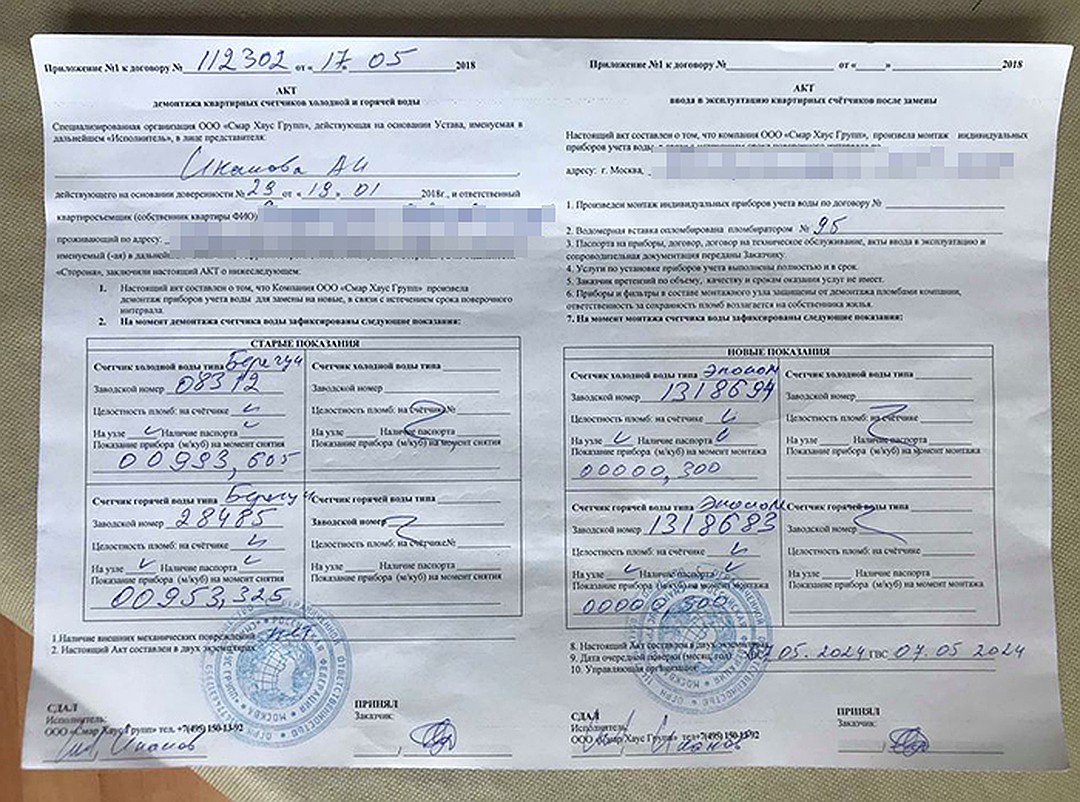 Приложение №1 к договору № 112302 от « 17 » 05 2018
АКТ
демонтажа квартирных счетчиков холодной и горячей воды
Специализированная организация ООО «Смар Хаус Групп», действующая на основании Устава, именуемая в
дальнейшем «Исполнитель», в лице представителя:
АИ
действующего на основании доверенности № 29 от « 19 » 01 2018г., и ответственный
квартиросъемщик (собственник квартиры ФИО)
проживающий по адресу:
именуемый (-ая) в
«Сторона», заключили настоящий АКТ о нижеследующем:
1. Настоящий акт составлен о том, что Компания ООО «Смар Хаус Групп» произвела
демонтаж приборов учета воды для замены на новые, в связи с истечением срока поверочного
интервала.
2. На момент демонтажа счетчика воды зафиксированы следующие показания:
СТАРЫЕ ПОКАЗАНИЯ
Счетчик холодной воды типа Берегун
Заводской номер 08312
Целостность пломб на счётчике
На узле Наличие паспорта
Показание прибора (м/куб) на момент снятия
00993,605
Счетчик холодной воды типа
Заводской номер
Целостность пломб: на счётчике№
На узле Наличие паспорта
Показание прибора (м/куб) на момент снятия
Счетчик горячей воды типа Берегун
Заводской номер 28485
Целостность пломб: на счётчике
На узле Наличие паспорта
Показание прибора (м/куб) на момент снятия
00953,325
Счетчик горячей воды типа
Заводской номер
Целостность пломб: на счётчике№
На узле Наличие паспорта
Показание прибора (м/куб) на момент снятия
1.Наличие внешних механических повреждений нет
2. Настоящий Акт составлен в двух экземплярах
СДАЛ
Исполнитель:
ООО «Смар Хаус Групп» тел. +7(495) 150-13-92
ПРИНЯЛ
Заказчик:
Приложение №1 к договору № от « » 2018
АКТ
ввода в эксплуатацию квартирных счётчиков после замены
Настоящий акт составлен о том, что компания ООО «Смар Хаус Групп», произвела монтаж индивидуальных
приборов учета воды
адресу: г. Москва,
1. Произведен монтаж индивидуальных приборов учета воды по договору №
2. Водомерная вставка опломбирована пломбиратором № 95
3. Паспорта на приборы, договор, договор на техническое обслуживание, акты ввода в эксплуатацию и
сопроводительная документация переданы Заказчику.
4. Услуги по установке приборов учета выполнены полностью и в срок.
5. Заказчик претензий по объему, качеству и срокам оказания услуг не имеет.
6. Приборы и фильтры в составе монтажного узла защищены от демонтажа пломбами компании,
ответственность за сохранность пломб возлагается на собственника жилья.
7. На момент монтажа счетчика воды зафиксированы следующие показания:
НОВЫЕ ПОКАЗАНИЯ
Счетчик холодной воды типа Эконом
Заводской номер 1318694
Целостность пломб: на счётчике
На узле Наличие паспорта
Показание прибора (м/куб) на момент монтажа
00000,300
Счетчик холодной воды типа
Заводской номер
Целостность пломб: на счётчике
На узле Наличие паспорта
Показание прибора (м/куб) на момент монтажа
Счетчик горячей воды типа Эконом
Заводской номер 1318683
Целостность пломб: на счётчике
На узле Наличие паспорта
Показание прибора (м/куб) на момент монтажа
00000,500
Счетчик горячей воды типа
Заводской номер
Целостность пломб: на счётчике
На узле Наличие паспорта
Показание прибора (м/куб) на момент монтажа
8. Настоящий Акт составлен в двух экземплярах
9. Дата очередной поверки (месяц, год) 07.05.2024 ГВС 07.05.2024
10. Управляющая организация:
СДАЛ
Исполнитель:
ООО «Смар Хаус Групп» тел.+7(495) 150-13-92
ПРИНЯЛ
Заказчик: